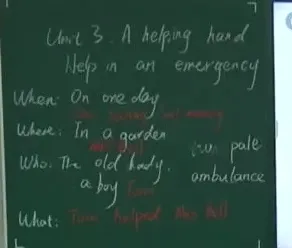 Unit 3. A helping hand
Help in an emergency
When: On one day
Where: In a garden
Who: The old lady. pale
a boy Tom ambulance
What: Tom helped Mrs Bell